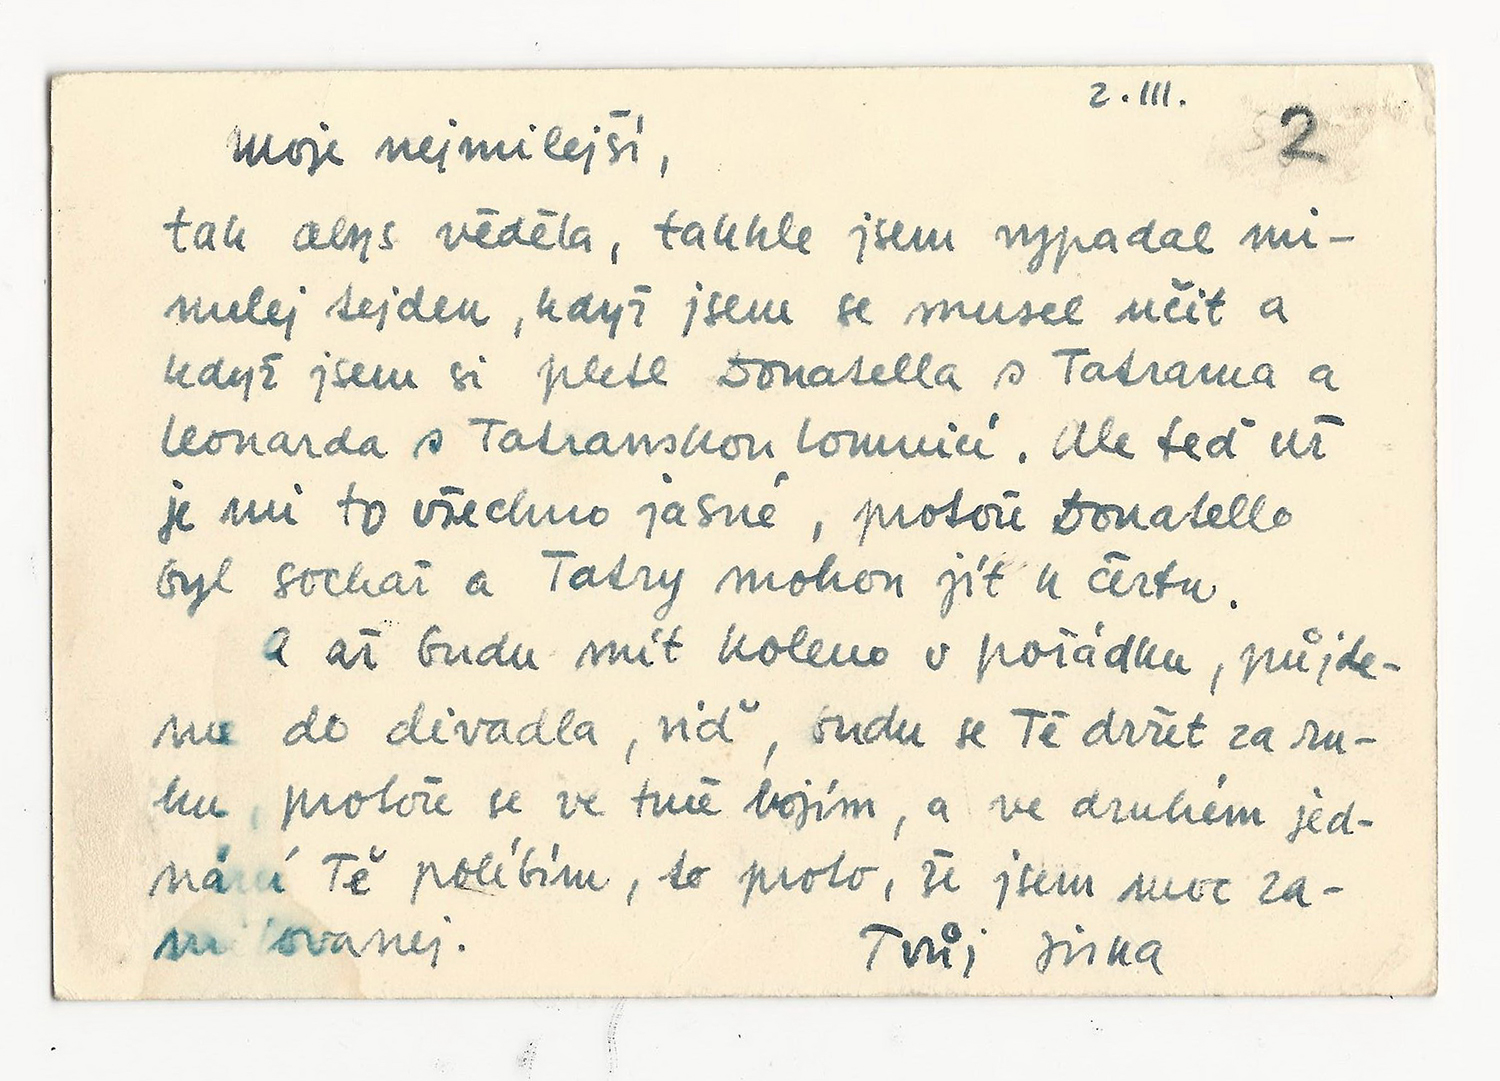 2.III.
2
Moje nejmilejší,
tak abys věděla, takhle jsem vypadal mi-
nulej tejden, když jsem se musel učit a
když jsem si pletl Donatella s Tatrama a
Leonarda s Tatranskou Lomnicí. Ale teď už
je mi to všechno jasné, protože Donatello
byl sochař a Tatry mohou jít k čertu.
A až budu mít koleno v pořádku, půjde-
me do divadla, viď, budu se Tě držet za ru-
ku, protože se ve tmě bojím, a ve druhém jed-
nání Tě políbím, to proto, že jsem moc za-
milovanej.
Tvůj Jirka